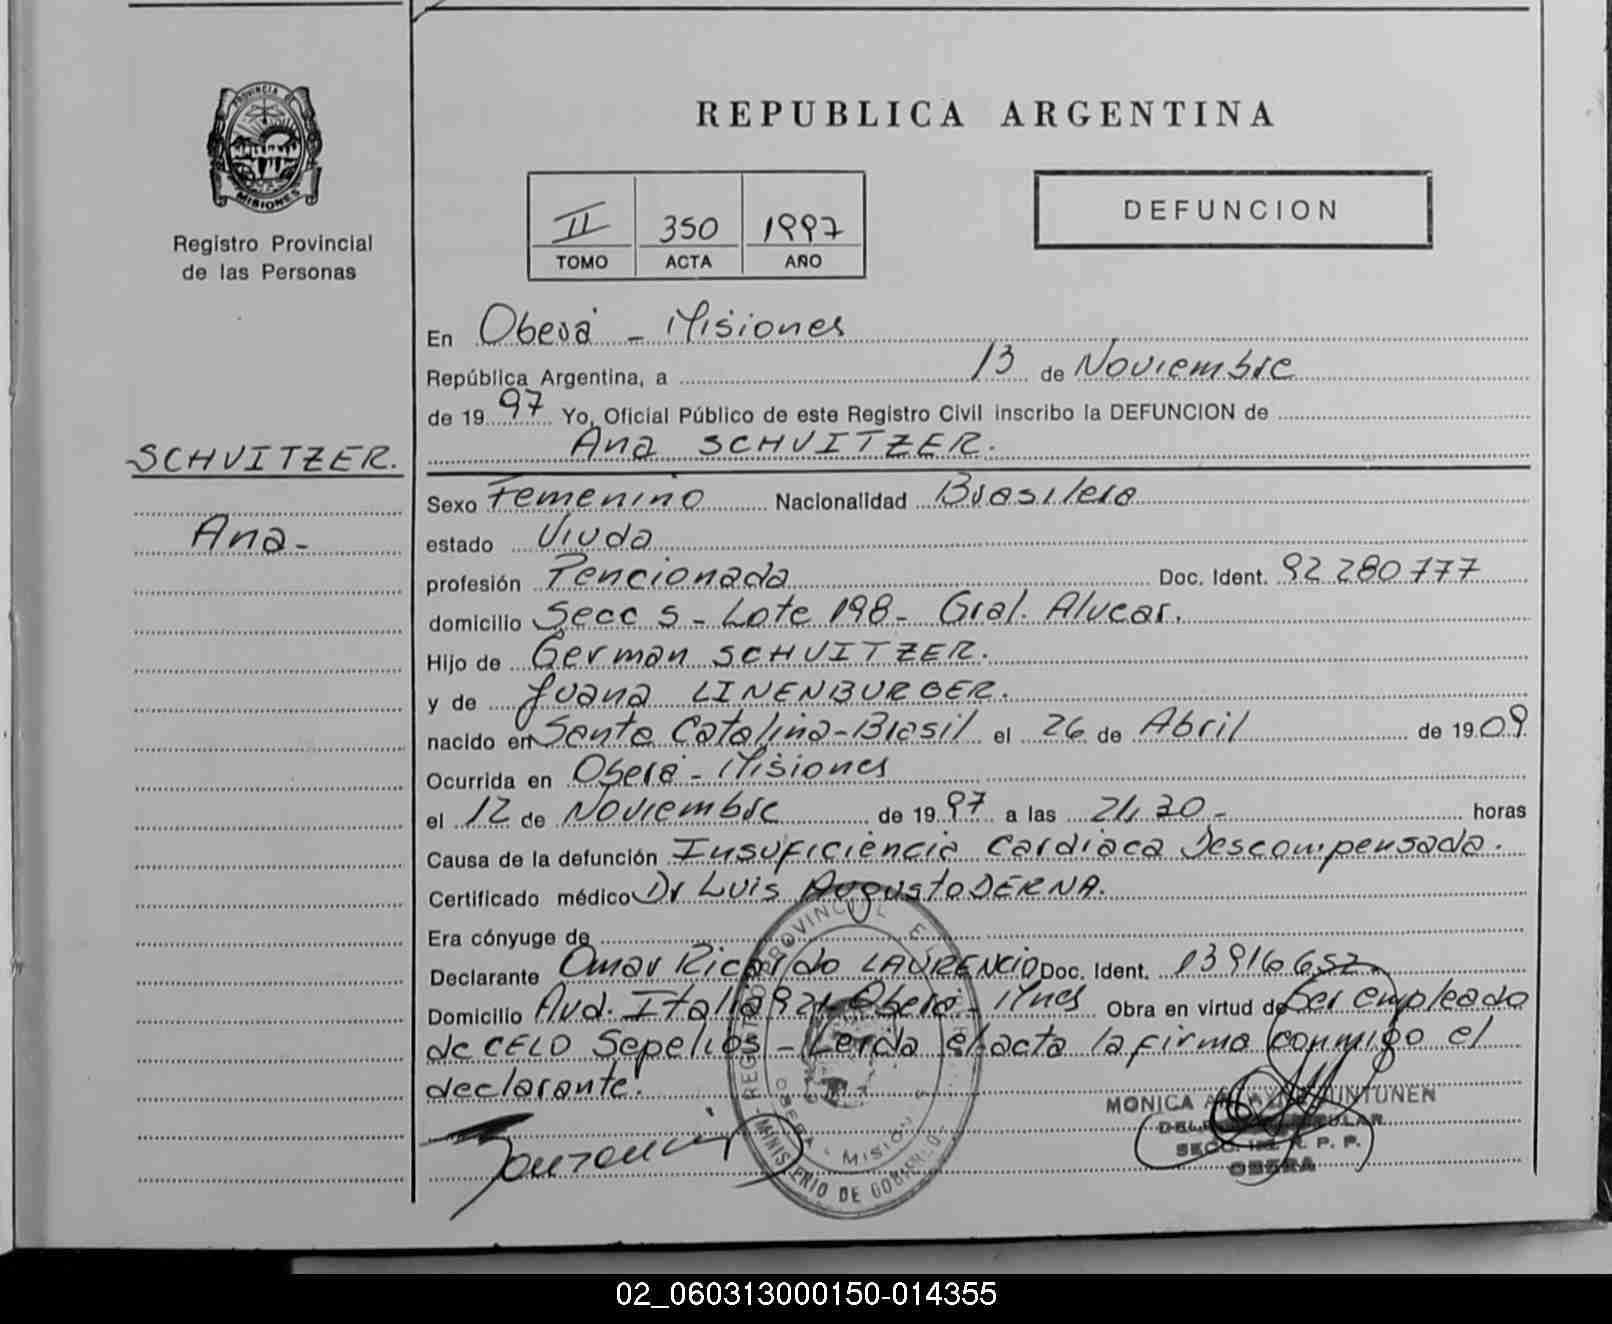 PROVINCIA DE
MISIONES
Registro Provincial
de las Personas
SCHVITZER.
Ana-
REPUBLICA ARGENTINA
II 350 1997
TOMO ACTA AÑO
DEFUNCION
En Oberá - Misiones
República Argentina, a 13 de Noviembre
de 19 97 Yo, Oficial Público de este Registro Civil inscribo la DEFUNCION de
Ana SCHVITZER.
Sexo Femenino Nacionalidad Brasilera
estado Viuda
profesión Pencionada Doc. Ident. 92 280 777
domicilio Secc 5 - Lote 198 - Gral. Alvear.
Hijo de German SCHVITZER.
y de Juana LINENBURGER.
nacido en Santa Catalina - Brasil el 26 de Abril de 19 09
Ocurrida en Oberá - Misiones
el 12 de Noviembre de 19 97 a las 21,30 - horas
Causa de la defunción Insuficiencia Cardiaca Descompensada.
Certificado médico Dr Luis Augusto DERNA.
Era cónyuge de
Declarante Omar Ricardo LAURENCIO Doc. Ident. 13916652
Domicilio Avd. Italia 921 - Oberá - Mnes Obra en virtud de Ser empleado
de CELO Sepelios - Leida el acta la firma conmigo el
declarante.
REGISTRO PROVINCIAL
MINISTERIO DE GOBIERNO
OBERA - MISIONES
MONICA
SECC. R. P. P.
OBERA
02_060313000150-014355